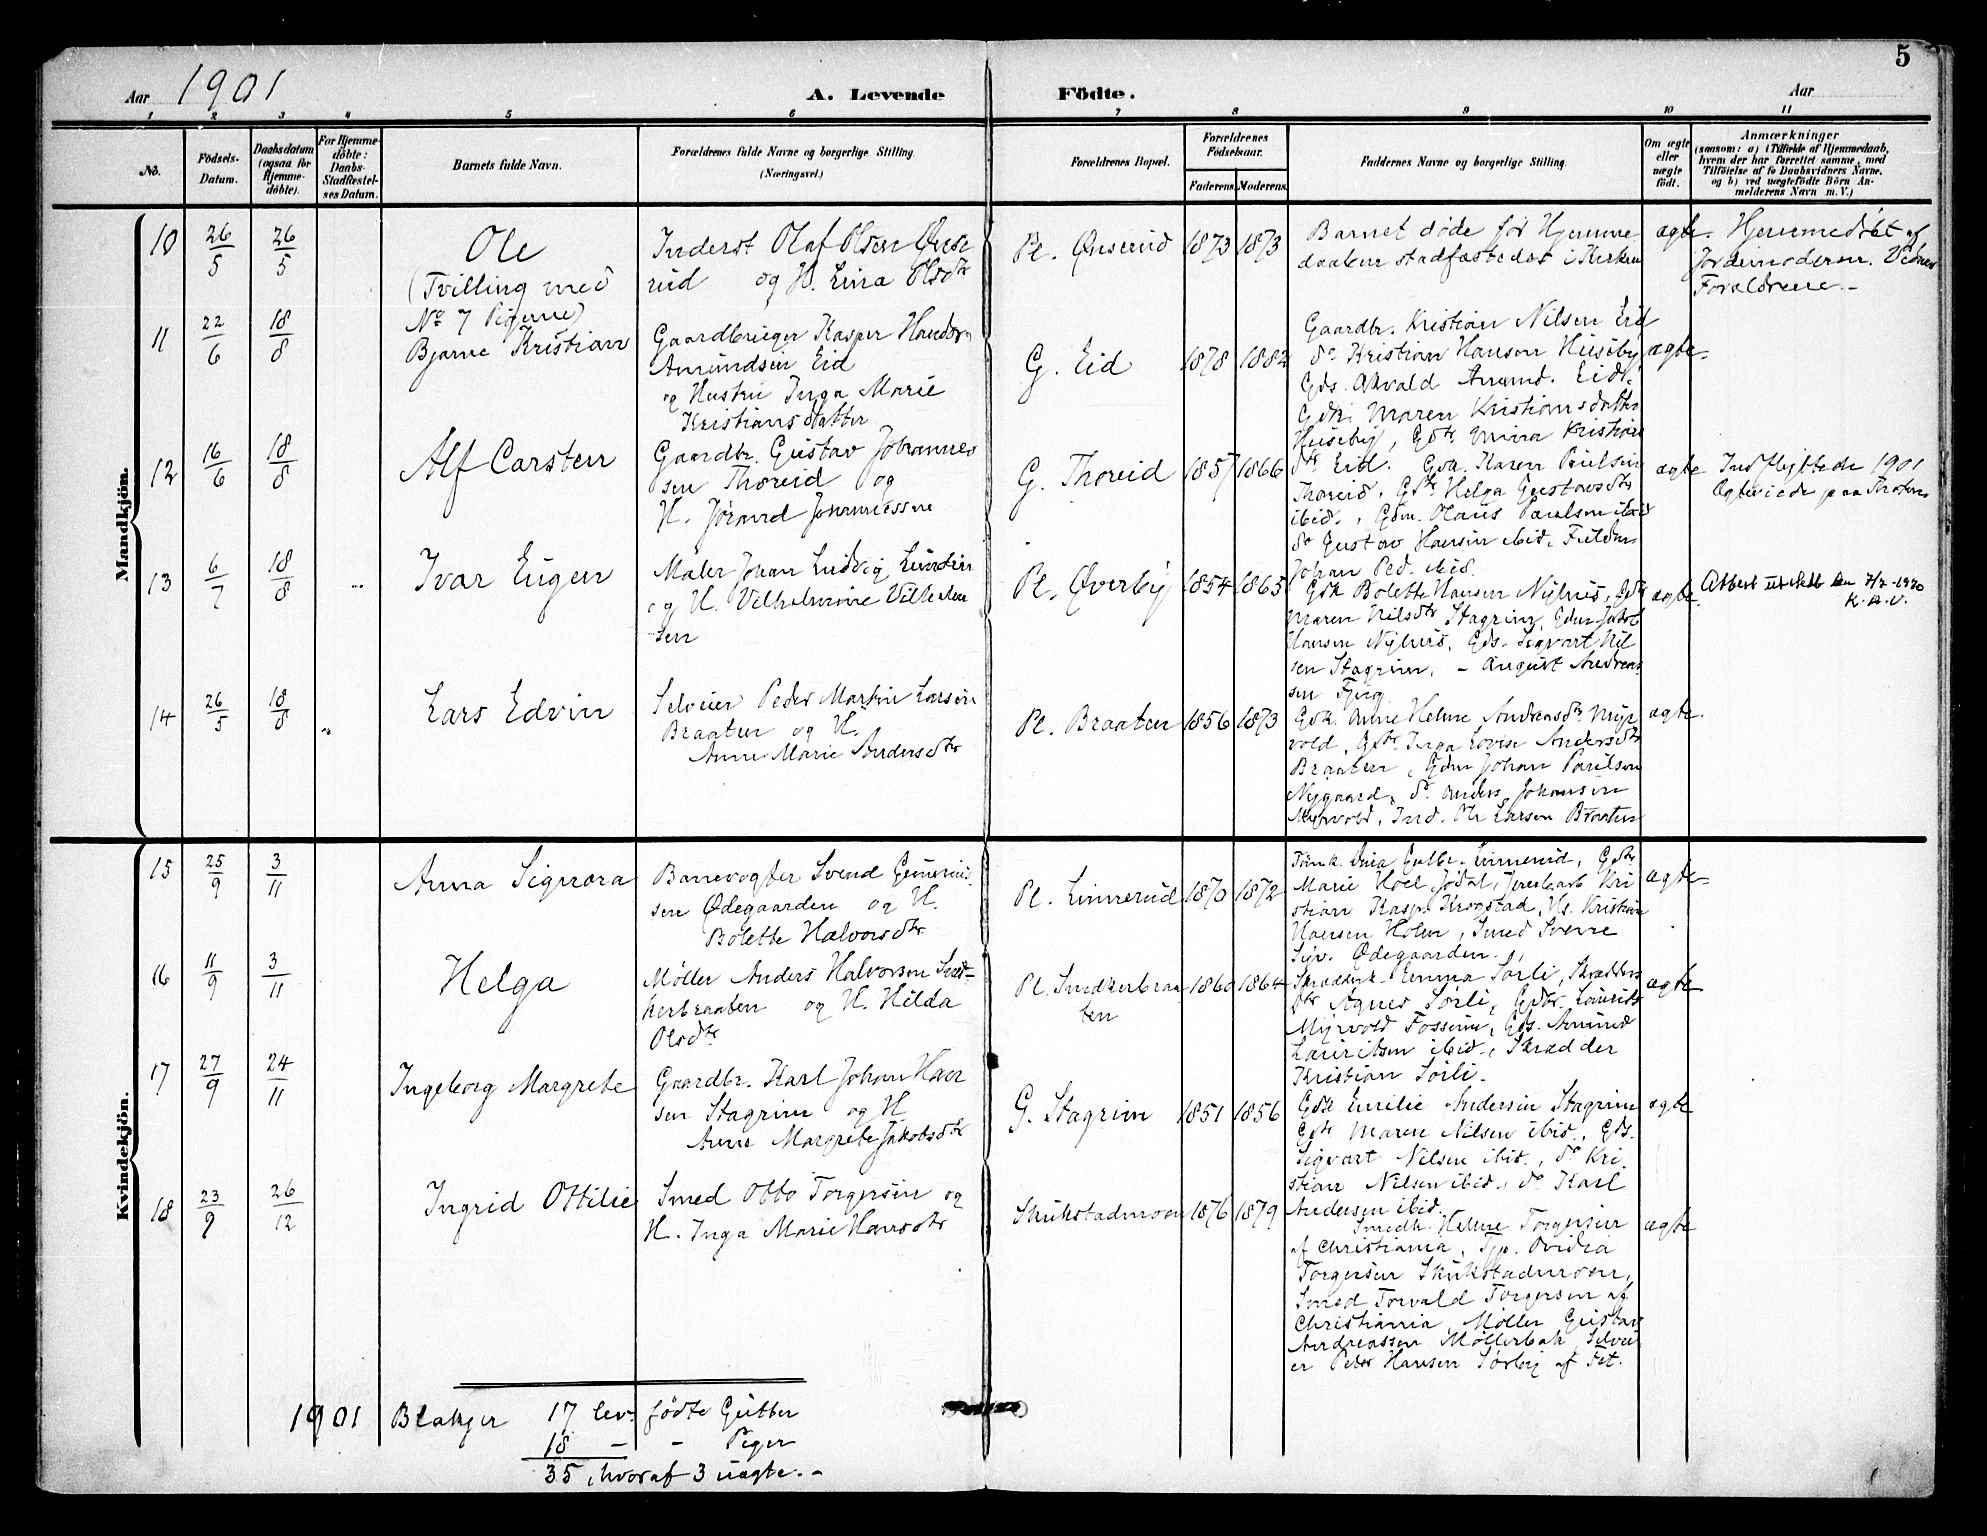 5
Aar 1901
A. Levende
Födte.
Aar
1 2 3 4 5 6 7 8 9 10 11
No.
Födsels-
Datum.
Daabsdatum
(ogsaa for
Hjemme-
döbte).
For Hjemme-
döbte:
Daabs-
Stadfæstel-
ses Datum.
Barnets fulde Navn.
Forældrenes fulde Navne og borgerlige Stilling.
(Næringsvei.)
Forældrenes Bopæl.
Forældrenes
Födselsaar.
Faderens.
Moderens.
Faddernes Navne og borgerlige Stilling.
Om ægte
eller
uægte
födt.
Anmærkninger
(saasom: a) i Tilfælde af Hjemmedaab,
hvem der har forrettet samme, med
Tilföielse af to Daabsvidners Navne,
og b) ved uægtefödte Börn An-
melderens Navn m. V.)
Mandkjön.
10
26/5
26/5
Ole
(Tvilling med
No 7 Pigerne)
Inderst Olaf Olsen Ønse
rud og H. Lina Olsdtr
Pl. Ønserud
1873
1873
Barnet døde før Hjemme
daaben stadfæstedes i Kirken
ægte.
Hjemmedøbt af
Jordemoderen. Vidner
Forældrene.-
11
22/6
18/8
Bjarne Kristian
Gaardbruger Kasper
Amundsen Eid
og Hustru Inga Marie
Kristiansdatter
G. Eid
1878
1882
Gaardbr. Kristian Nilsen Eid
do Kristian Hansen Huseby
Gds. Amund. Eid,
Gdk. Maren Kristiansdatter
Huseby, Gdtr. Mina Kristian
dtr Eid.
ægte.
12
16/6
18/8
Alf Carsten
Gaardbr. Gustav Johannes
sen Thoreid og
H. Johannessen
G. Thoreid
1857
1866
Gdk. Karen Paulsen
Thoreid, Gdtr Helga Gustavsdtr
ibid., Gdm. Olaus Paulsen ibid
do Gustav Hansen ibid,
Johan Ped. ibid.
ægte
Indflyttede 1901
Ægteviede paa Thoten
13
6/7
18/8
Ivar Eugen
Maler Johan Ludvig
og H. Vilhelmine Vilhelm
sen
Pl. Øverby
1854
1865
Gdk Bolette Hansen Nyhus, Gdtr
Maren Nilsdtr Stagrim, Gdm Jakob
Hansen Nyhus, Gds. Sigvart Nil
sen Stagrim, - August Andreas
sen
ægte.
Attest utstedt den 7/7-1920
K.A.V.
14
26/5
18/8
"
Lars Edvin
Selveier Peder Martin Larsen
Braaten og H.
Anne Marie Andersdtr
Pl. Braaten
1856
1873
Gdk. Anne Helene Andreasdtr Myr
vold, Gdtr. Inga Lovise Andersdtr
Braaten, Gdm Johan Paulsen
Nygaard, do Anders Johansen
Myrvold, Ind. Ole Larsen Braaten
ægte.
Kvindekjön.
15
25/9
3/11
Anna Signora
Banevogter Svend
sen Ødegaarden og H.
Bolette Halvorsdtr
Pl. Linnerud
1870
1872
Linnerud, Gdtr
Marie Hoel, Kri
stian Kasp. Krogstad, Hs. Kristian
Hansen Holm, Smed Sverre
Syv. Ødegaarden.
ægte.
16
11/9
3/11
Helga
Møller Anders Halvorsen Sned-
kerbraaten og H. Hilda
Olsdtr
Pl. Snedkerbraa
ten
1860
1864
Skrædderk. Emma Sørli, Skrædder
dtr Agnes Sørli, Gdtr.
Myrvold Fosserud, Gds. Amund
Lauritsen ibid., Skrædder
Kristian Sørli.
ægte
17
27/9
24/11
Ingeborg Margrete
Gaardbr. Karl Johan Han
sen Stagrim og H
Anne Margrete Jakobsdtr
G. Stagrim
1851
1856
Gdk Emilie Andersen Stagrim
Gdtr Maren Nilsen ibid., Gds.
Sigvart Nilsen ibid., do Kri
stian Nilsen ibid., do Karl
Andersen ibid.
ægte
18
23/9
26/12
Ingrid Ottilie
Smed Otto Torgersen og
H. Inga Marie Hansdtr
Skukstadmoen
1876
1879
Smedk. Helene Torgersen
af Christiania, Tjp. Ovidia
Torgersen Skukstadmoen,
Smed Torvald Torgersen af
Christiania, Møller Gustav
Andreassen Møllerbak, Selvei
er Peder Hansen Sørby af Fet.
ægte
1901 Blakjer 17 lev. fødte Gutter
18 - - Piger
35, hvoraf 3 uægte.-